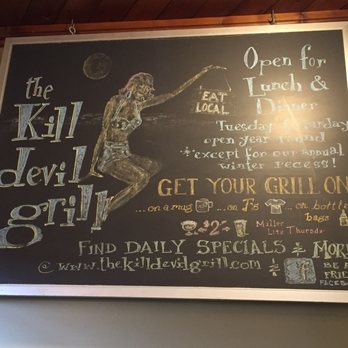 the
Kill
devil
grill
EAT
LOCAL
Open for
Lunch &
Dinner
open year round
*except for our annual
winter recess!
GET YOUR GRILL ON
...on a mug
...on T's
...on bottle
bags
$2
Miller
Lite Thursda
FIND DAILY SPECIALS & MORE
@ www.thekilldevilgrill.com &
f
BE A
FRIE
FACEB